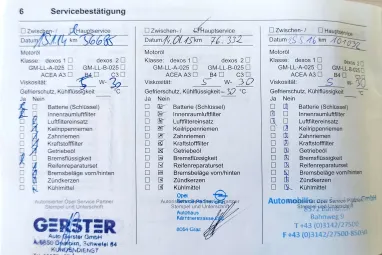 6 Servicebestätigung
Zwischen-/ Hauptservice
Datum km 56665
Motoröl
Klasse: dexos 1 dexos 2
GM-LL-A-025 GM-LL-B-025
ACEA A3 B4 C3
Viskosität: 5 W- 30
Gefrierschutz, Kühlflüssigkeit °C
Ja Nein
Batterie (Schlüssel)
Innenraumluftfilter
Luftfiltereinsatz
Keilrippenriemen
Zahnriemen
Kraftstoffilter
Getriebeöl
Bremsflüssigkeit
Reifenreparaturset
Bremsbeläge vorn/hinten
Zündkerzen
Kühlmittel
Autorisierter Opel Service Partner
Stempel und Unterschrift
GERSTER
Auto Gerster GmbH
KUNDENDIENST
Zwischen-/ Hauptservice
Datum 14.01.15 km 76.332
Motoröl
Klasse: dexos 1 dexos 2
GM-LL-A-025 GM-LL-B-025
ACEA A3 B4 C3
Viskosität: 5 W- 30
Gefrierschutz, Kühlflüssigkeit -32 °C
Ja Nein
Batterie (Schlüssel)
Innenraumluftfilter
Luftfiltereinsatz
Keilrippenriemen
Zahnriemen
Kraftstoffilter
Getriebeöl
Bremsflüssigkeit
Reifenreparaturset
Bremsbeläge vorn/hinten
Zündkerzen
Kühlmittel
Opel
Service Partner
Autohaus
8054 Graz
Zwischen-/ Hauptservice
Datum km
Motoröl
Klasse: dexos 1 dexos 2
GM-LL-A-025 GM-LL-B-025
ACEA A3 B4 C3
Viskosität: 5 W- 30
Gefrierschutz, Kühlflüssigkeit °C
Ja Nein
Batterie (Schlüssel)
Innenraumluftfilter
Luftfiltereinsatz
Keilrippenriemen
Zahnriemen
Kraftstoffilter
Getriebeöl
Bremsflüssigkeit
Reifenreparaturset
Bremsbeläge vorn/hinten
Zündkerzen
Kühlmittel
Bahnweg 9
T +43 (0)3142/27500
F +43 (0)3142/27500-85098